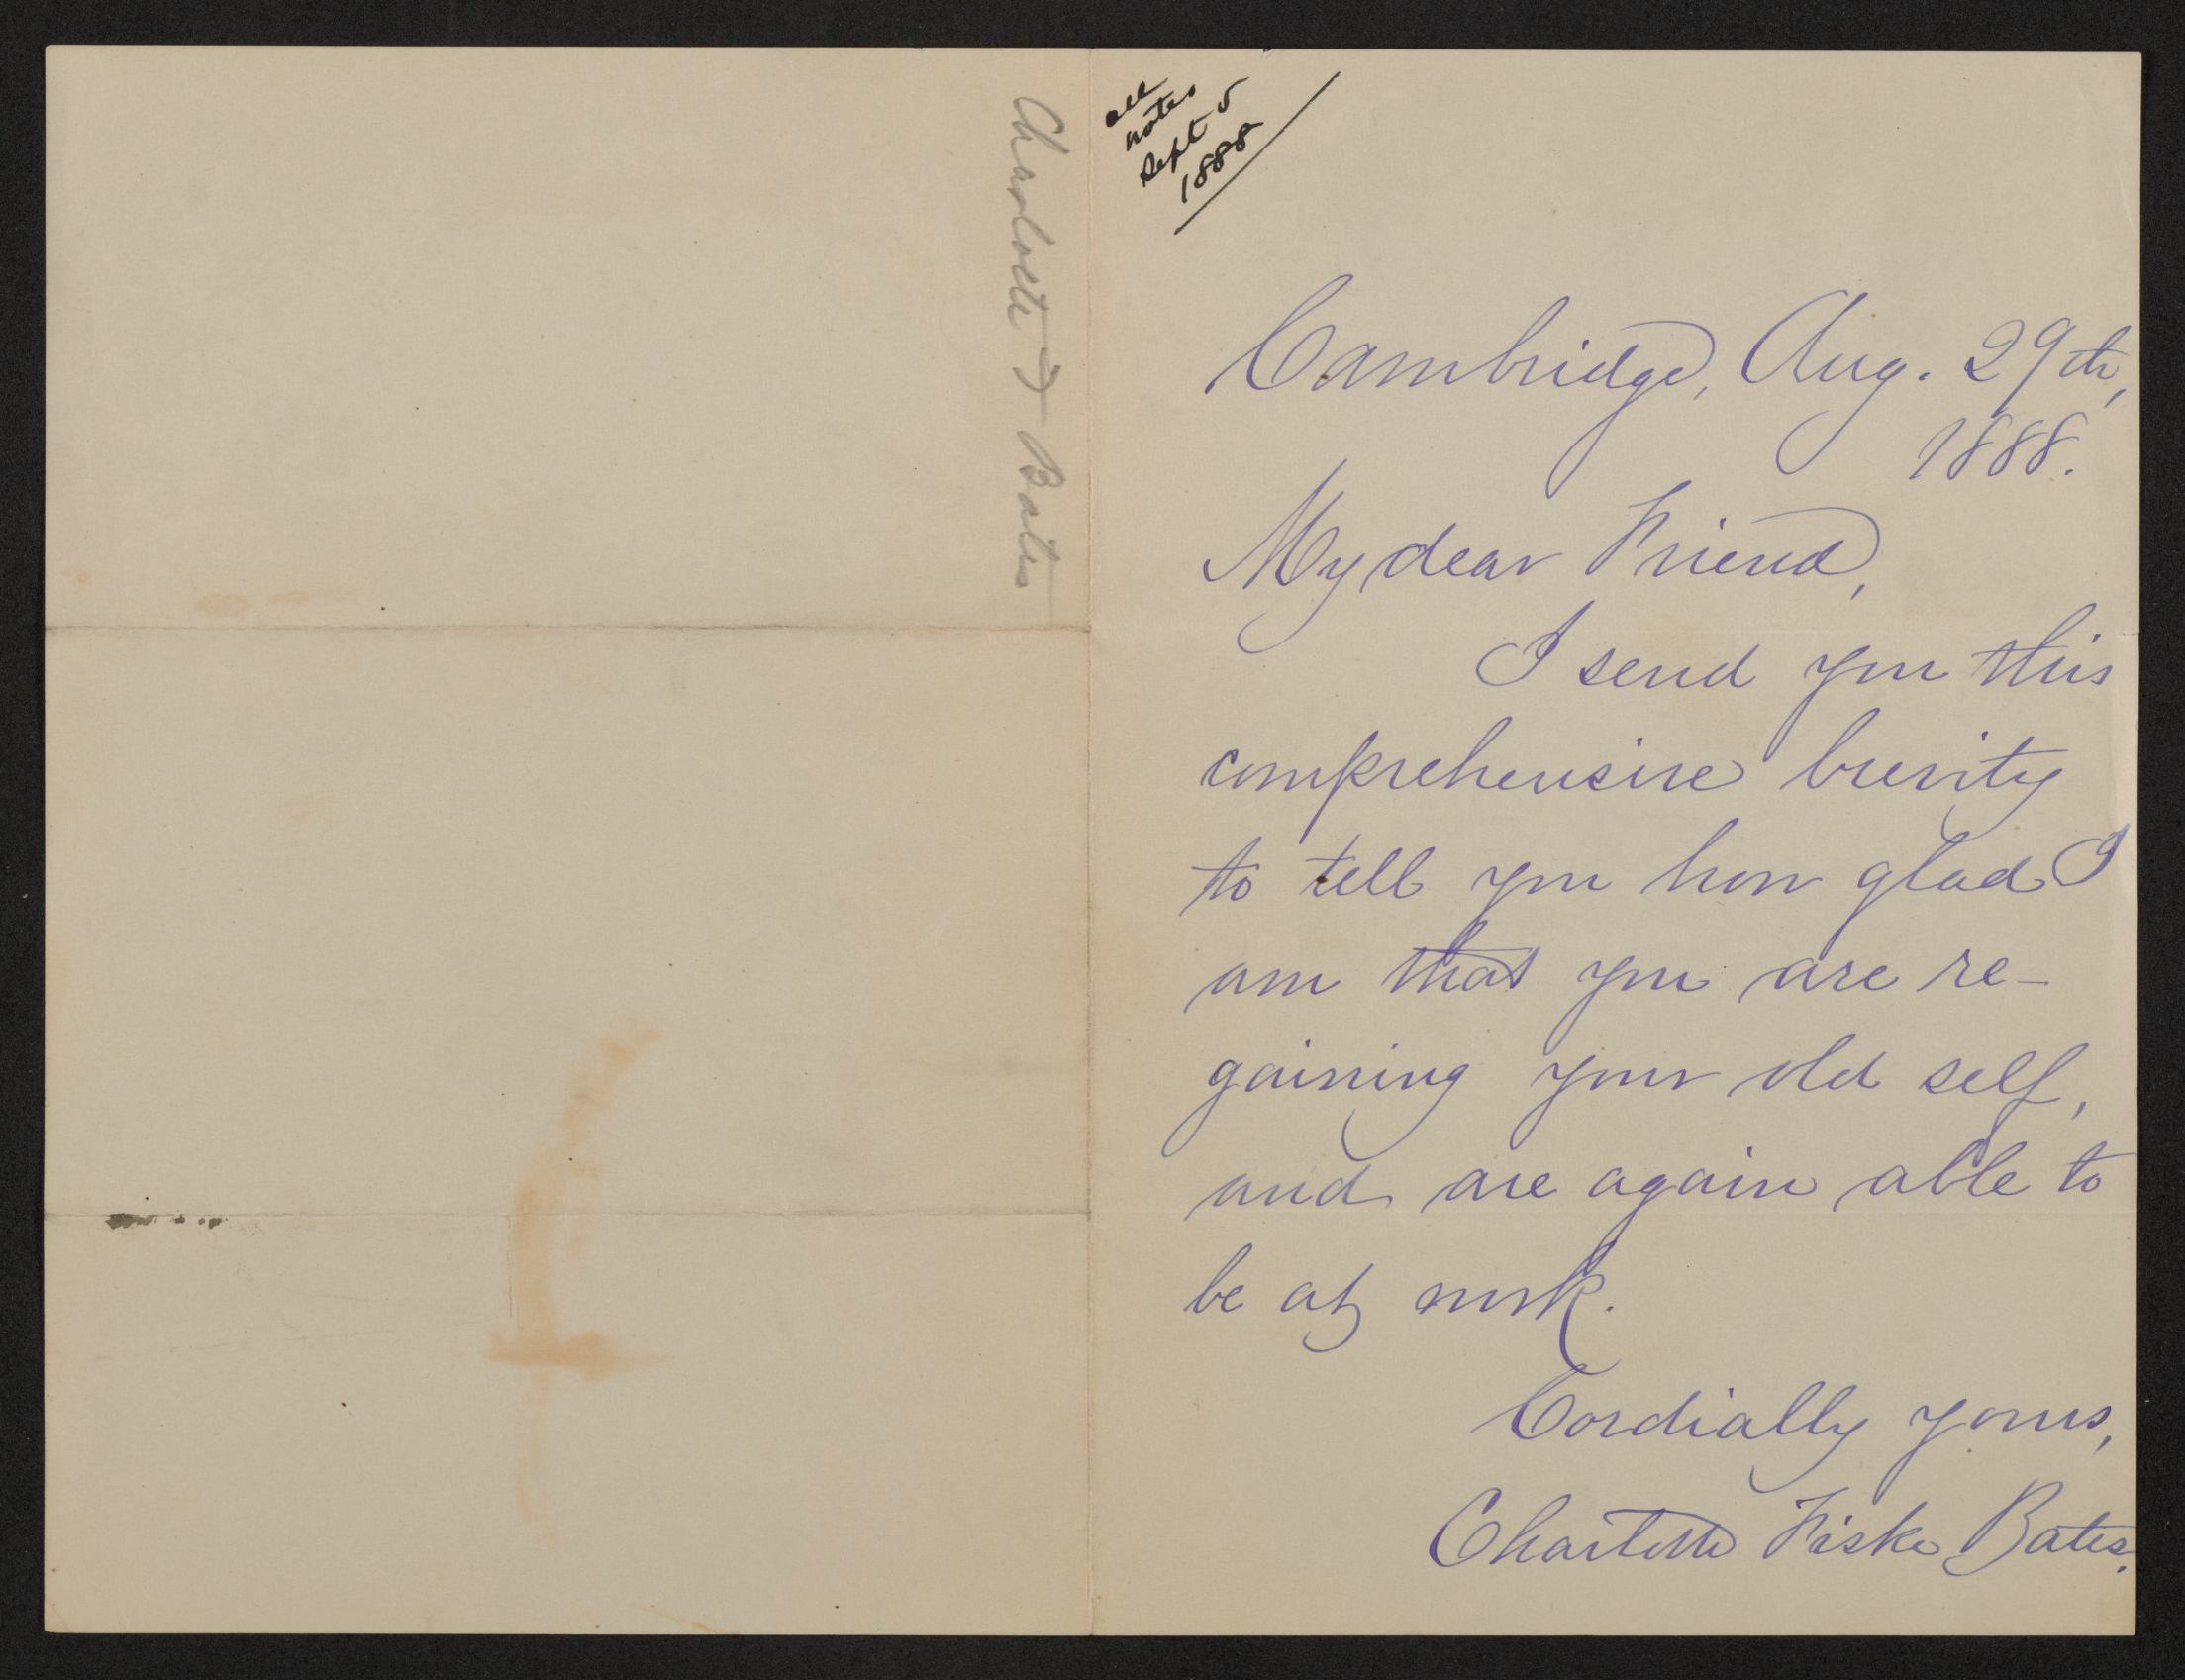 Charlotte F Bates
see
notes
Sept 5
1888
Cambridge, Aug. 29th,
1888.
My dear Friend,
I send you this
comprehensive brevity
to tell you how glad I
am that you are re-
gaining your old self,
and are again able to
be at work.
Cordially yours,
Charlotte Fiske Bates.